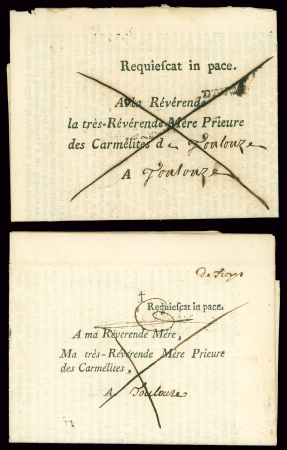 Requieſcat in pace.
A Ma Révérende
la très-Révérende Mère Prieure
des Carmélites de Toulouze
A Toulouze
de Troyes
†
Requieſcat in pace.
A ma Révérende Mère,
Ma très-Révérende Mère Prieure
des Carmélites,
A Toulouze